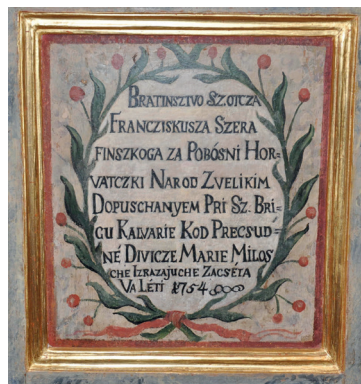 BRATINSZTVO SZ.OTCZA
FRANCZISKUSZA SZERA
FINSZKOGA ZA POBÓSNI HOR=
VATCZKI NAROD ZVELIKIM
DOPUSCHANYEM PRI SZ. BRI=
GU KALVARIE KOD PRECSUD=
NÉ DIVICZE MARIE MILOS
CHE IZRAZAJUCHE ZACSÉTA
VA LÉTI 1754